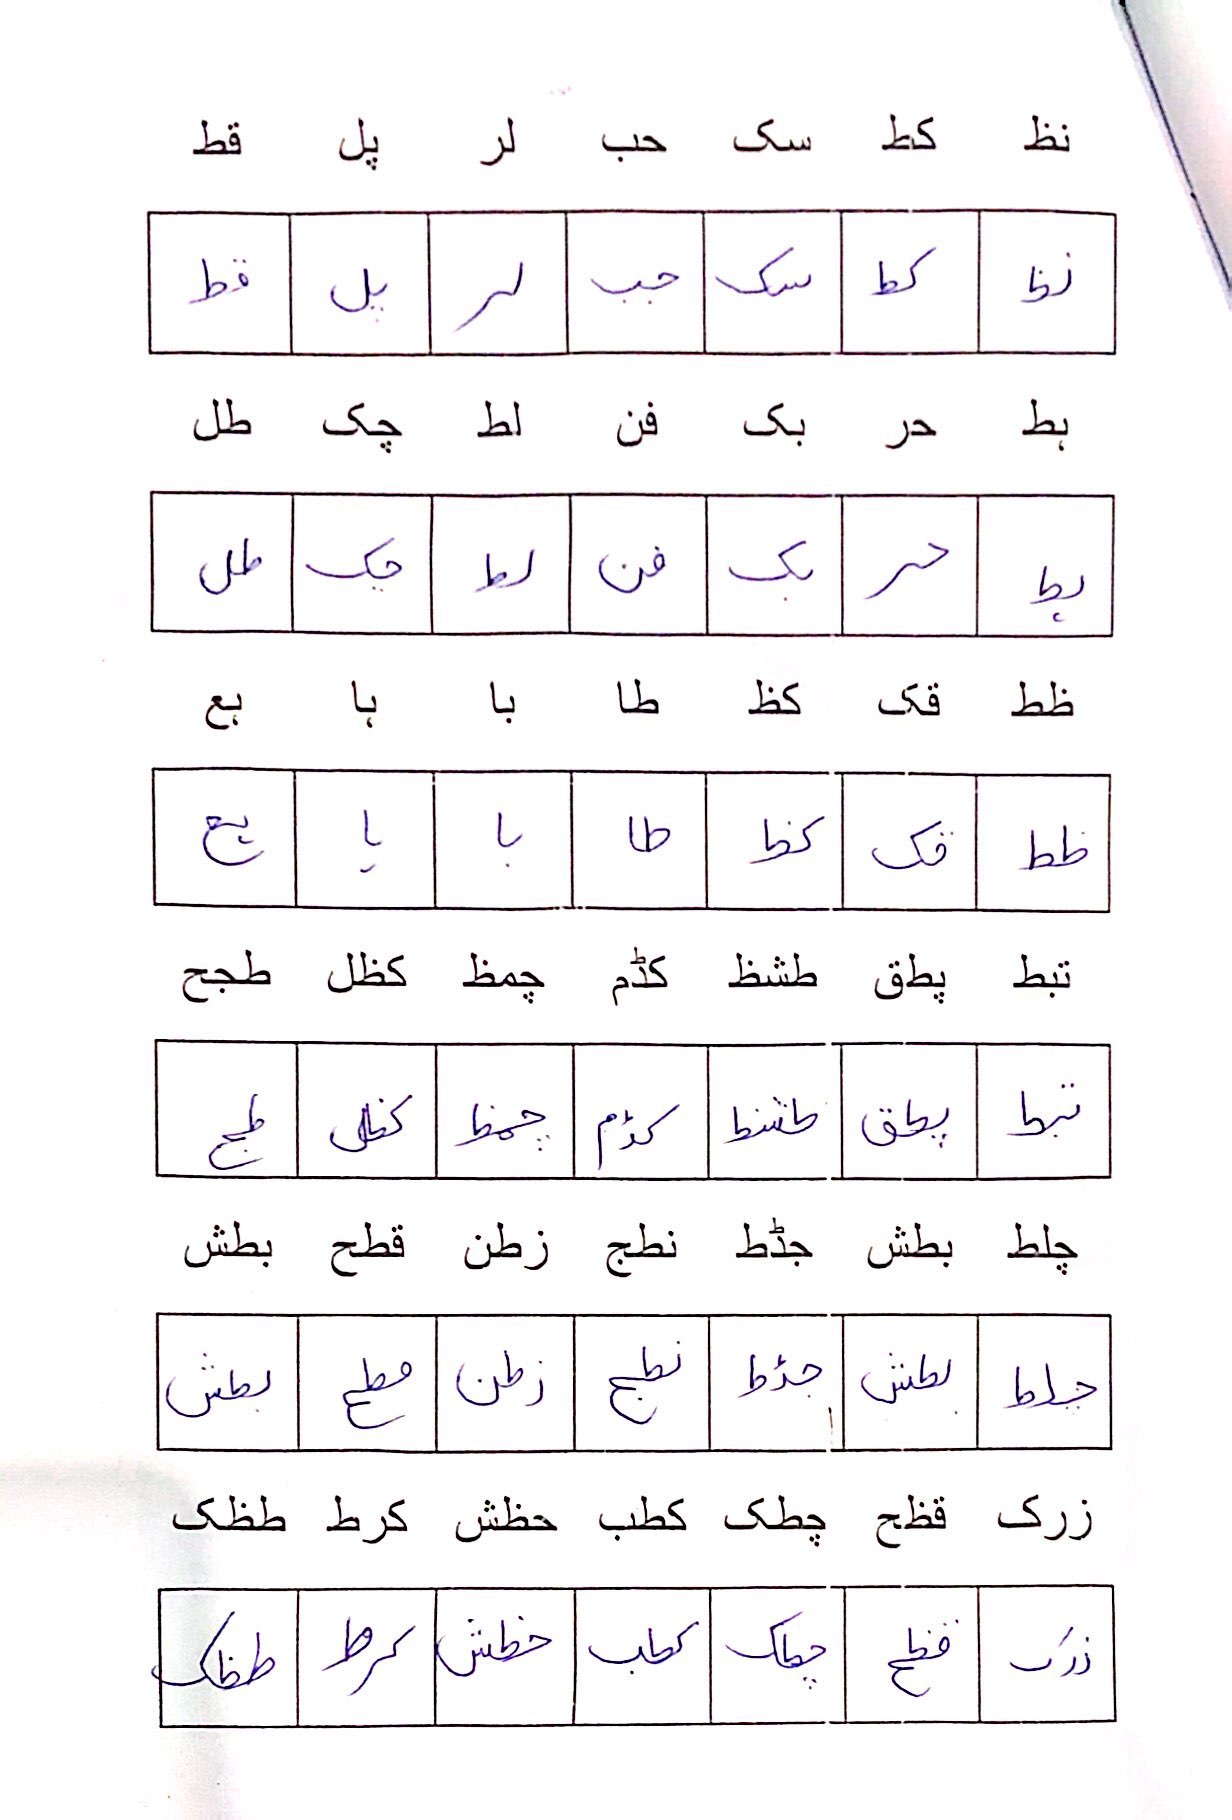 نظ کط سک حب لر پل قط
نظ کط سک حب لر پل قط
ہط حر بک فن لط چک طل
ہط حر بک فن لط چک طل
ظط قک کظ طا با ہا ہع
ظط قک کظ طا با ہا ہع
تبط پطق طشظ کڈم چمظ کظل طجح
تبط پطق طشظ کڈم چمظ کظل طجح
چلط بطش جڈط نطج زطن قطح بطش
چلط بطش جڈط نطج زطن قطح بطش
زرک قظح چطک کطب حظش کرط طظک
زرک قظح چطک کطب خظش کرط طظک